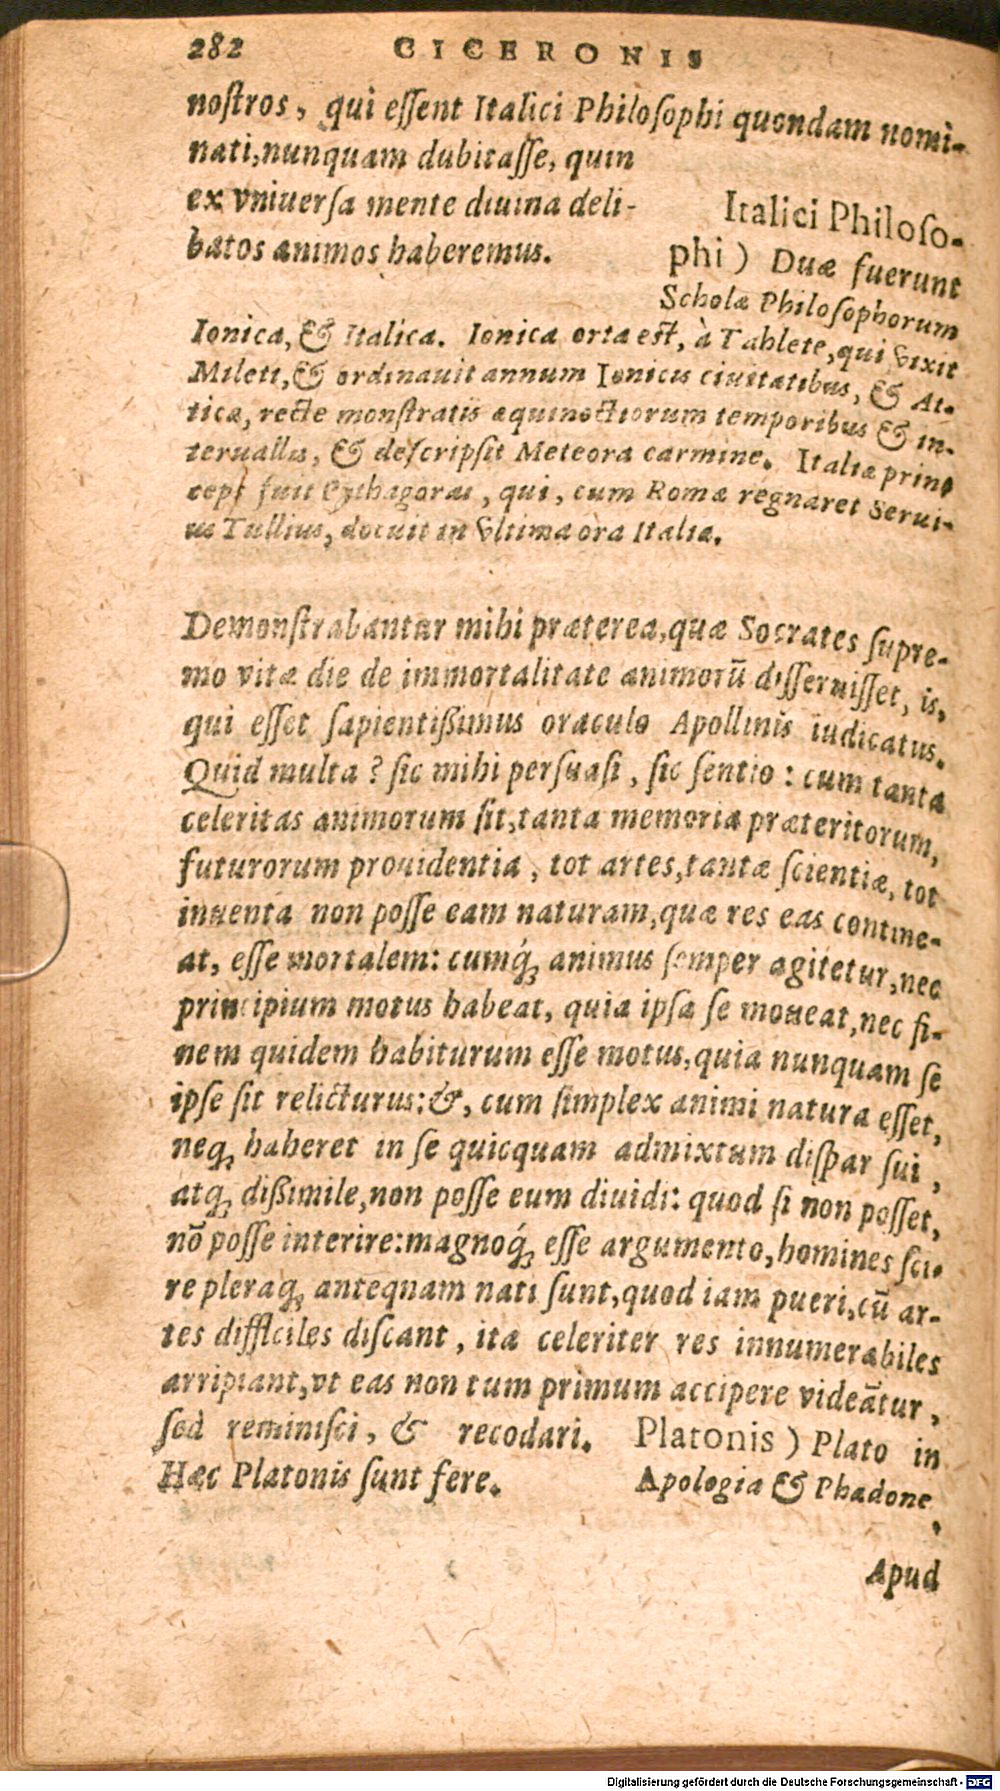 282 CICERONIS
nostros, qui essent Italici Philosophi quondam nomi-
nati, nunquam dubitasse, quin
ex vniuersa mente diuina deli-
batos animos haberemus.
Italici Philoso-
phi) Duæ fuerunt
Scholæ Philosophorum
Ionica, & Italica. Ionica orta est, à Tahlete, qui vixit
Mileti, & ordinauit annum Ionicis ciuitatibus, & At-
ticæ, recte monstratis æquinoctiorum temporibus & in-
teruallis, & descripsit Meteora carmine. Italiæ prin-
ceps fuit Pythagoras, qui, cum Romæ regnaret Serui-
us Tullius, docuit in vltima ora Italiæ.
Demonstrabantur mihi præterea, quæ Socrates supre-
mo vitæ die de immortalitate animorũ disseruisset, is,
qui esset sapientißimus oraculo Apollinis iudicatus.
Quid multa? sic mihi persuasi, sic sentio: cum tanta
celeritas animorum sit, tanta memoria præteritorum,
futurorum prouidentia, tot artes, tantæ scientiæ, tot
inuenta non posse eam naturam, quæ res eas contine-
at, esse mortalem: cumq́; animus semper agitetur, nec
principium motus habeat, quia ipsa se moueat, nec fi-
nem quidem habiturum esse motus, quia nunquam se
ipse sit relicturus: &, cum simplex animi natura esset,
neq; haberet in se quicquam admixtum dispar sui,
atq; dißimile, non posse eum diuidi: quod si non posset,
nõ posse interire: magnoq́; esse argumento, homines sci-
re pleraq; antequam nati sunt, quod iam pueri, cũ ar-
tes difficiles discant, ita celeriter res innumerabiles
arripiant, vt eas non tum primum accipere videãtur,
sed reminisci, & recodari.
Hæc Platonis sunt fere.
Platonis) Plato in
Apologia & Phædone,
Apud
Digitalisierung gefördert durch die Deutsche Forschungsgemeinschaft - DFG